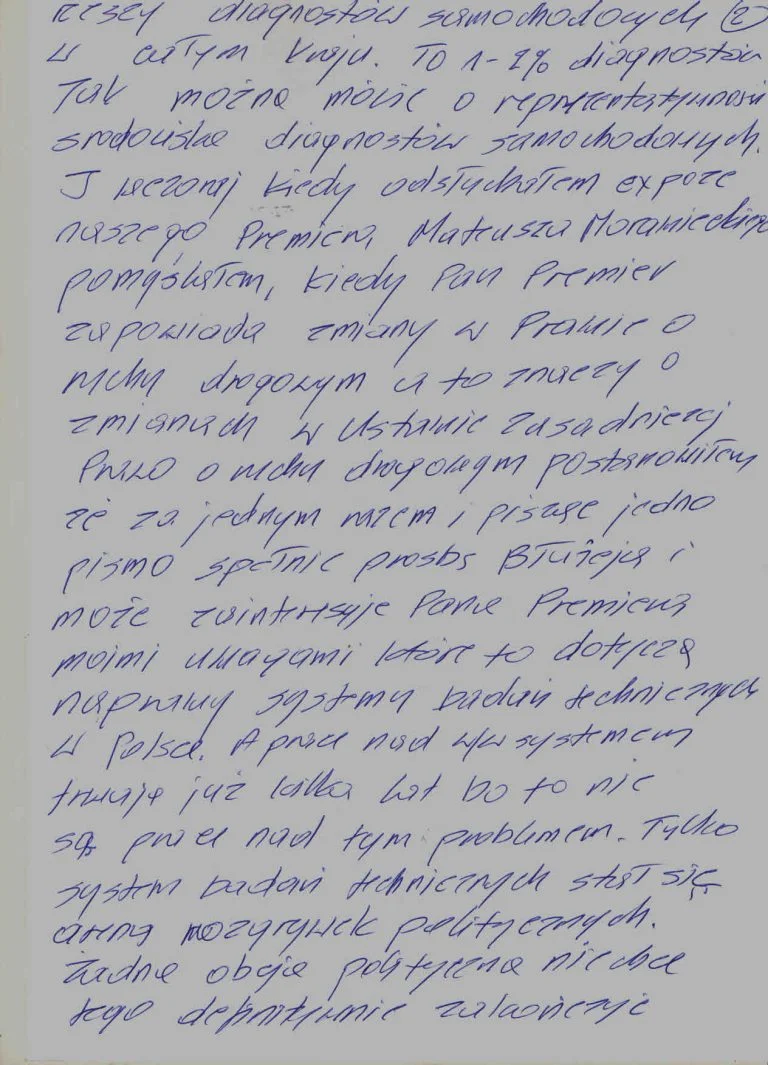 rzeszy diagnostów samochodowych (2)
w całym kraju. To 1-2% diagnostów
Tak można mówić o reprezentatywności
środowiska diagnostów samochodowych.
I wczoraj kiedy odsłuchałem expoze
naszego Premiera, Mateusza Morawieckiego
pomyślałem, kiedy Pan Premier
zapowiada zmiany w Prawie o
ruchu drogowym a to znaczy o
zmianach w Ustawie Zasadniczej
Prawo o ruchu drogowym postanowiłem
że za jednym razem i pisząc jedno
pismo spełnić prośbę Błażeja i
może zainteresuje Pana Premiera
moimi uwagami które to dotyczą
naprawy systemu badań technicznych
w Polsce. A prace nad w/w systemem
trwają już kilka lat bo to nie
są prace nad tym problemem. Tylko
system badań technicznych stał się
areną rozgrywek politycznych.
Żadna obcja polityczna nie chce
tego definitywnie zakończyć